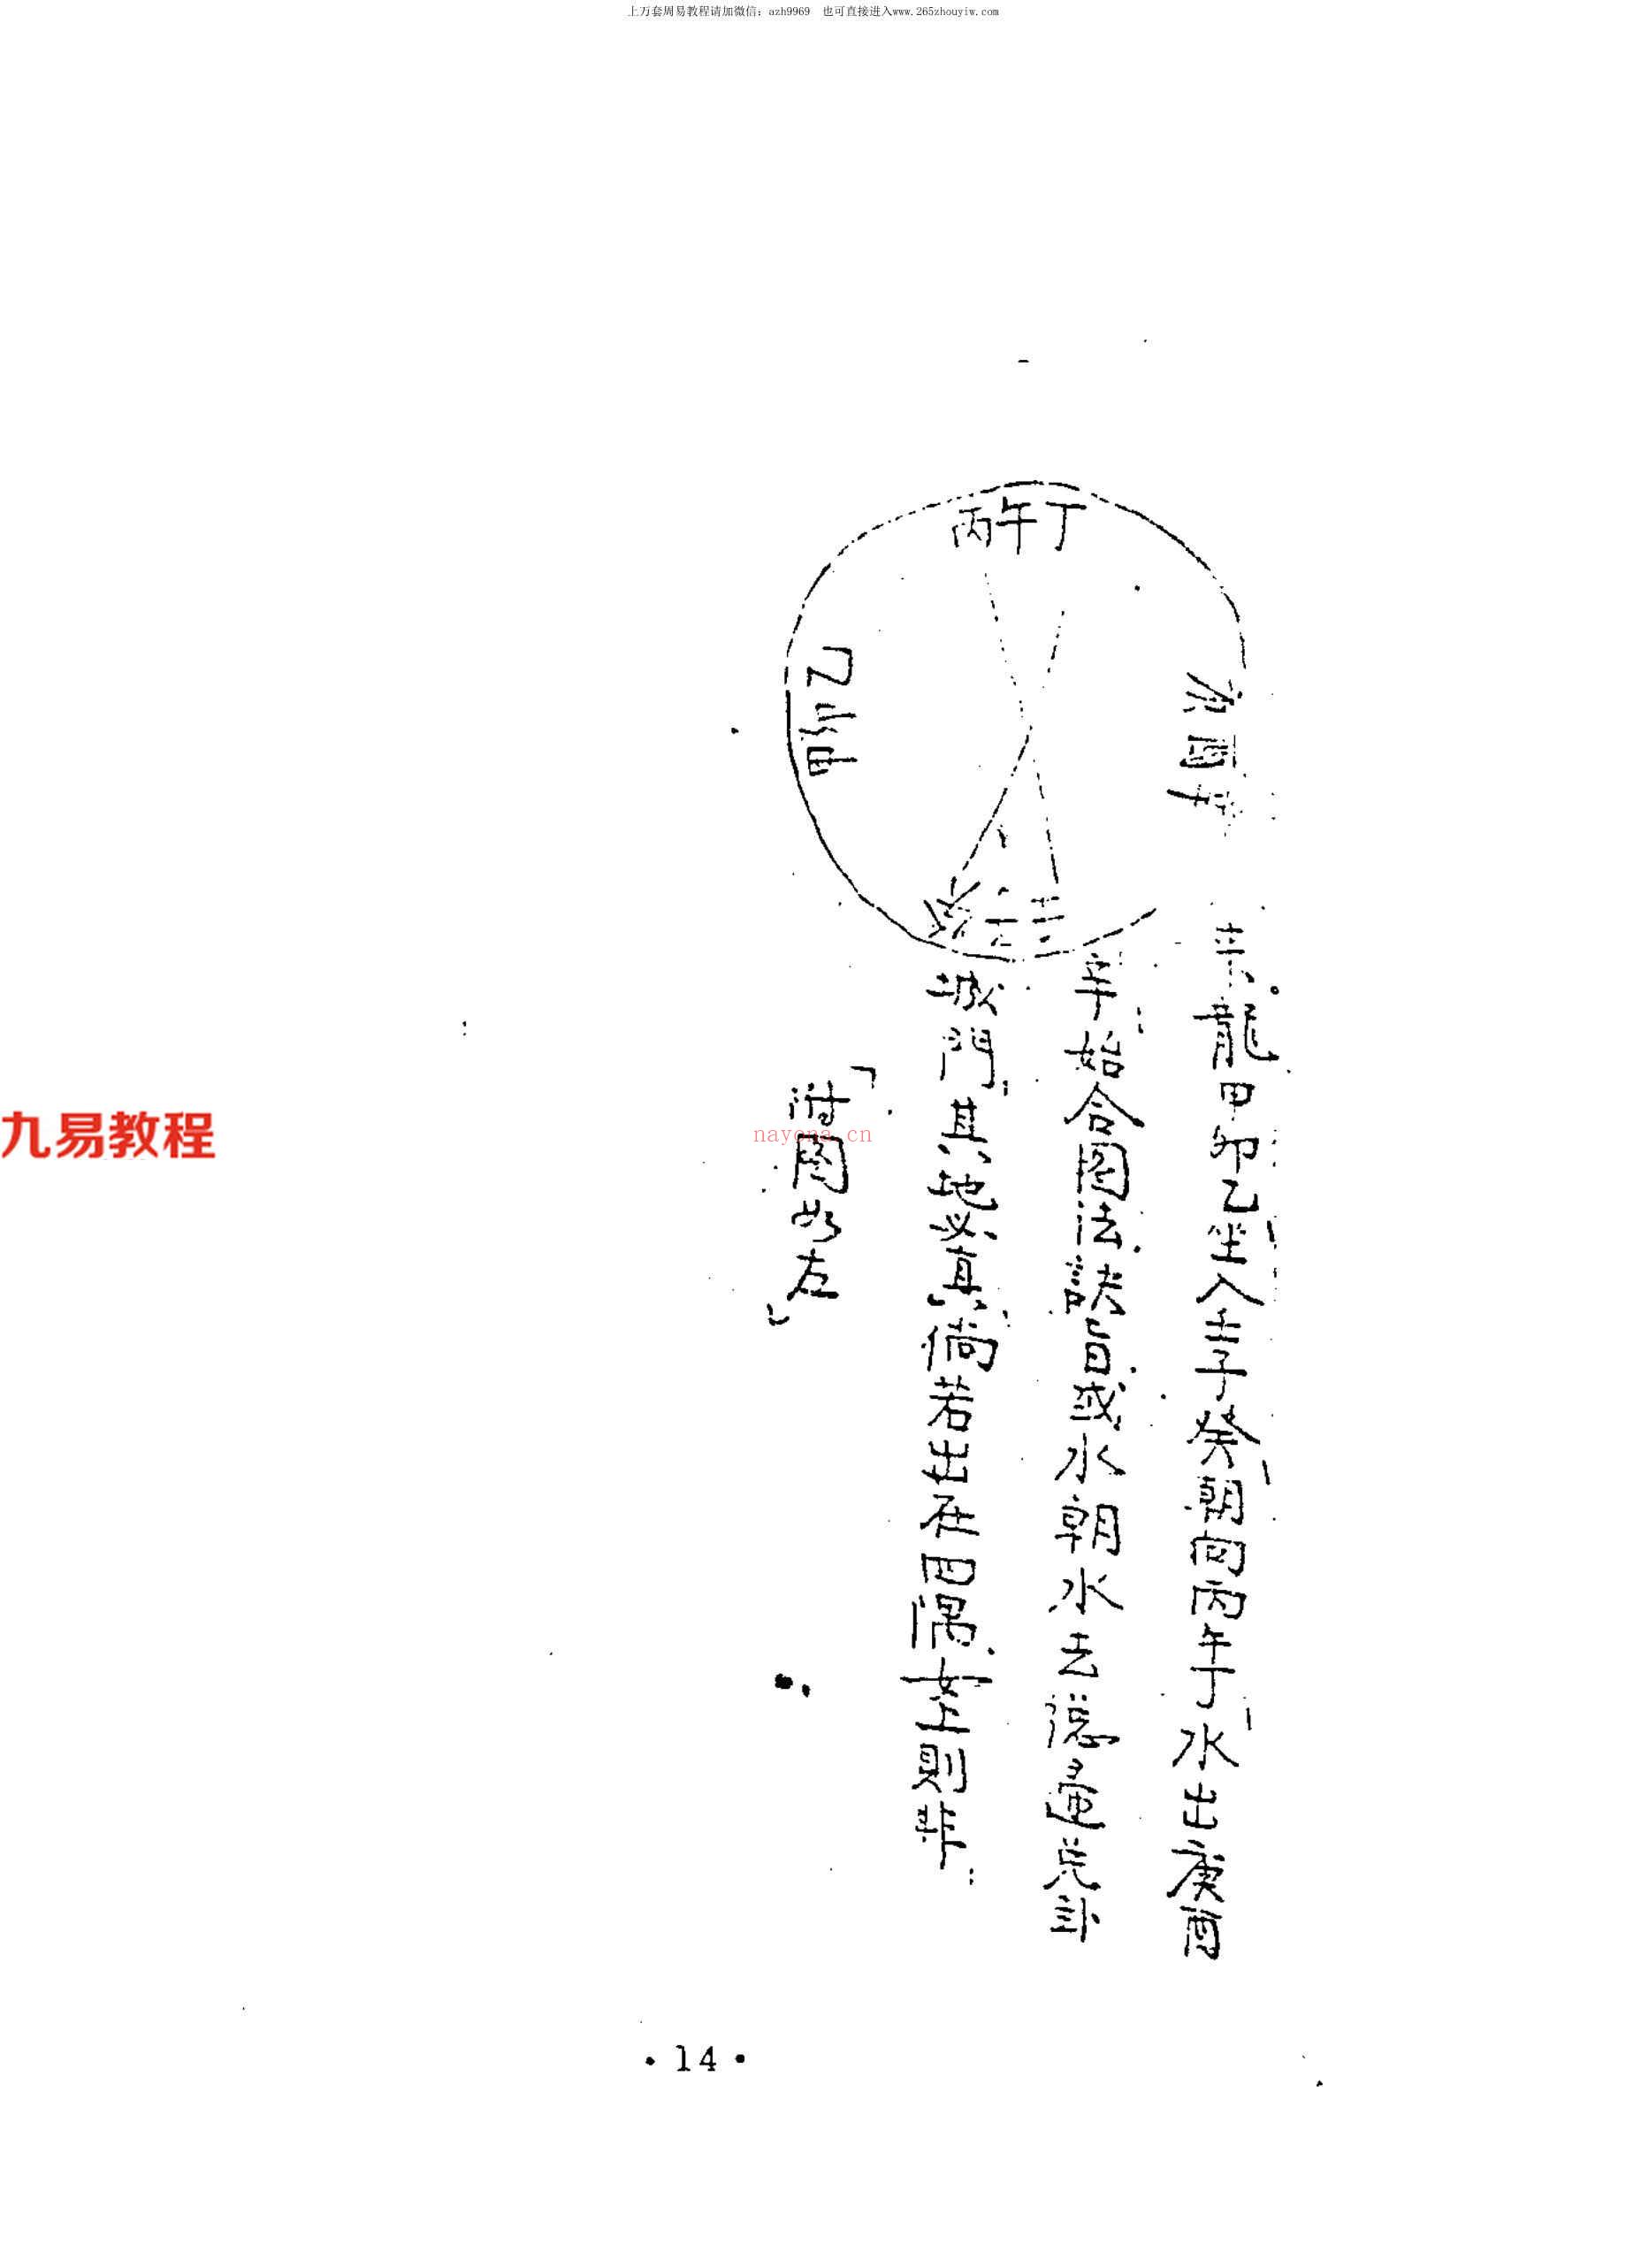 上万套周易教程请加微信：azh9969　也可直接进入www.265zhouyiw.com
丙午丁
乙卯甲
庚酉辛
癸子壬
来龍甲卯乙坐入壬子癸朝向丙午丁水出庚酉
辛始合图法訣旨或水朝水去總是兑卦
城門其地必真倘若出在四隅上則非
「附图如左」
九易教程
nayona.cn
·14·